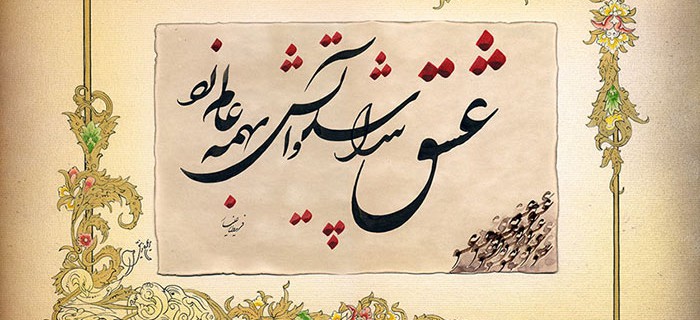 عشق پیدا شد و آتش به همه عالم زد